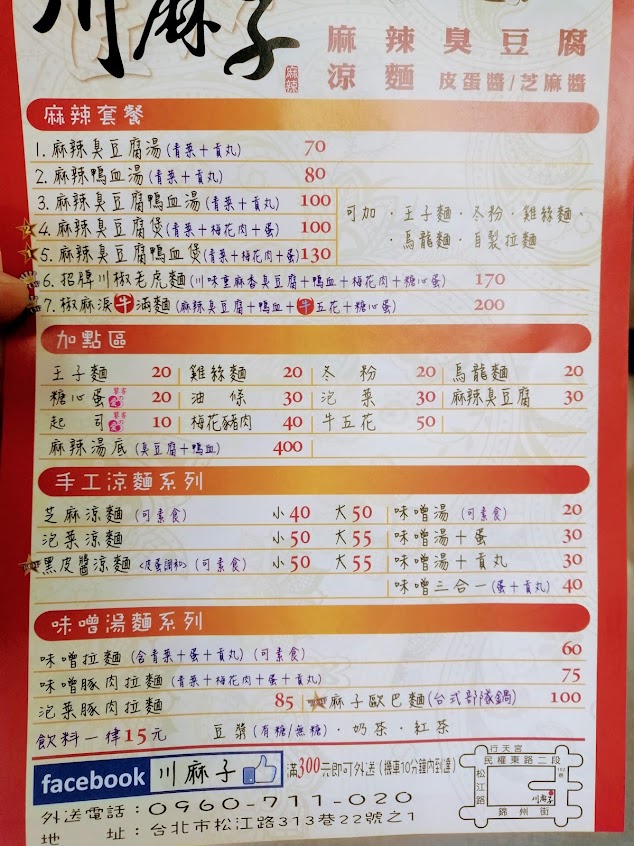 川麻子
麻辣
麻辣臭豆腐
涼麵 皮蛋醬/芝麻醬
麻辣套餐
1. 麻辣臭豆腐湯(青菜+貢丸) 70
2. 麻辣鴨血湯(青菜+貢丸) 80
3. 麻辣臭豆腐鴨血湯(青菜+貢丸) 100
4. 麻辣臭豆腐煲(青菜+梅花肉+蛋) 100
5. 麻辣臭豆腐鴨血煲(青菜+梅花肉+蛋) 130
可加·王子麵·冬粉·雞絲麵·
·烏龍麵·自製拉麵
6. 招牌川椒老虎麵(川味童麻香臭豆腐+鴨血+梅花肉+糖心蛋) 170
7. 椒麻淚牛滿麵(麻辣臭豆腐+鴨血+牛五花+糖心蛋) 200
加點區
王子麵 20 雞絲麵 20 冬粉 20 烏龍麵 20
糖心蛋 20 油條 30 泡菜 30 麻辣臭豆腐 30
起司 10 梅花豬肉 40 牛五花 50
麻辣湯底(臭豆腐+鴨血) 400
手工涼麵系列
芝麻涼麵(可素食) 小40 大50 味噌湯(可素食) 20
泡菜涼麵 小50 大55 味噌湯+蛋 30
黑皮醬涼麵<皮蛋調和>(可素食) 小50 大55 味噌湯+貢丸 30
味噌三合一(蛋+貢丸) 40
味噌湯麵系列
味噌拉麵(含青菜+蛋+貢丸)(可素食) 60
味噌豚肉拉麵(青菜+梅花肉+蛋+貢丸) 75
泡菜豚肉拉麵 85 麻子歐巴麵(台式部隊鍋) 100
飲料一律15元 豆漿(有糖/無糖)·奶茶·紅茶
facebook 川麻子 滿300元即可外送(機車10分鐘內到達)
外送電話:0960-711-020
地址:台北市松江路313巷22號之1
行天宮
民權東路二段
松江路
川麻子
錦州街